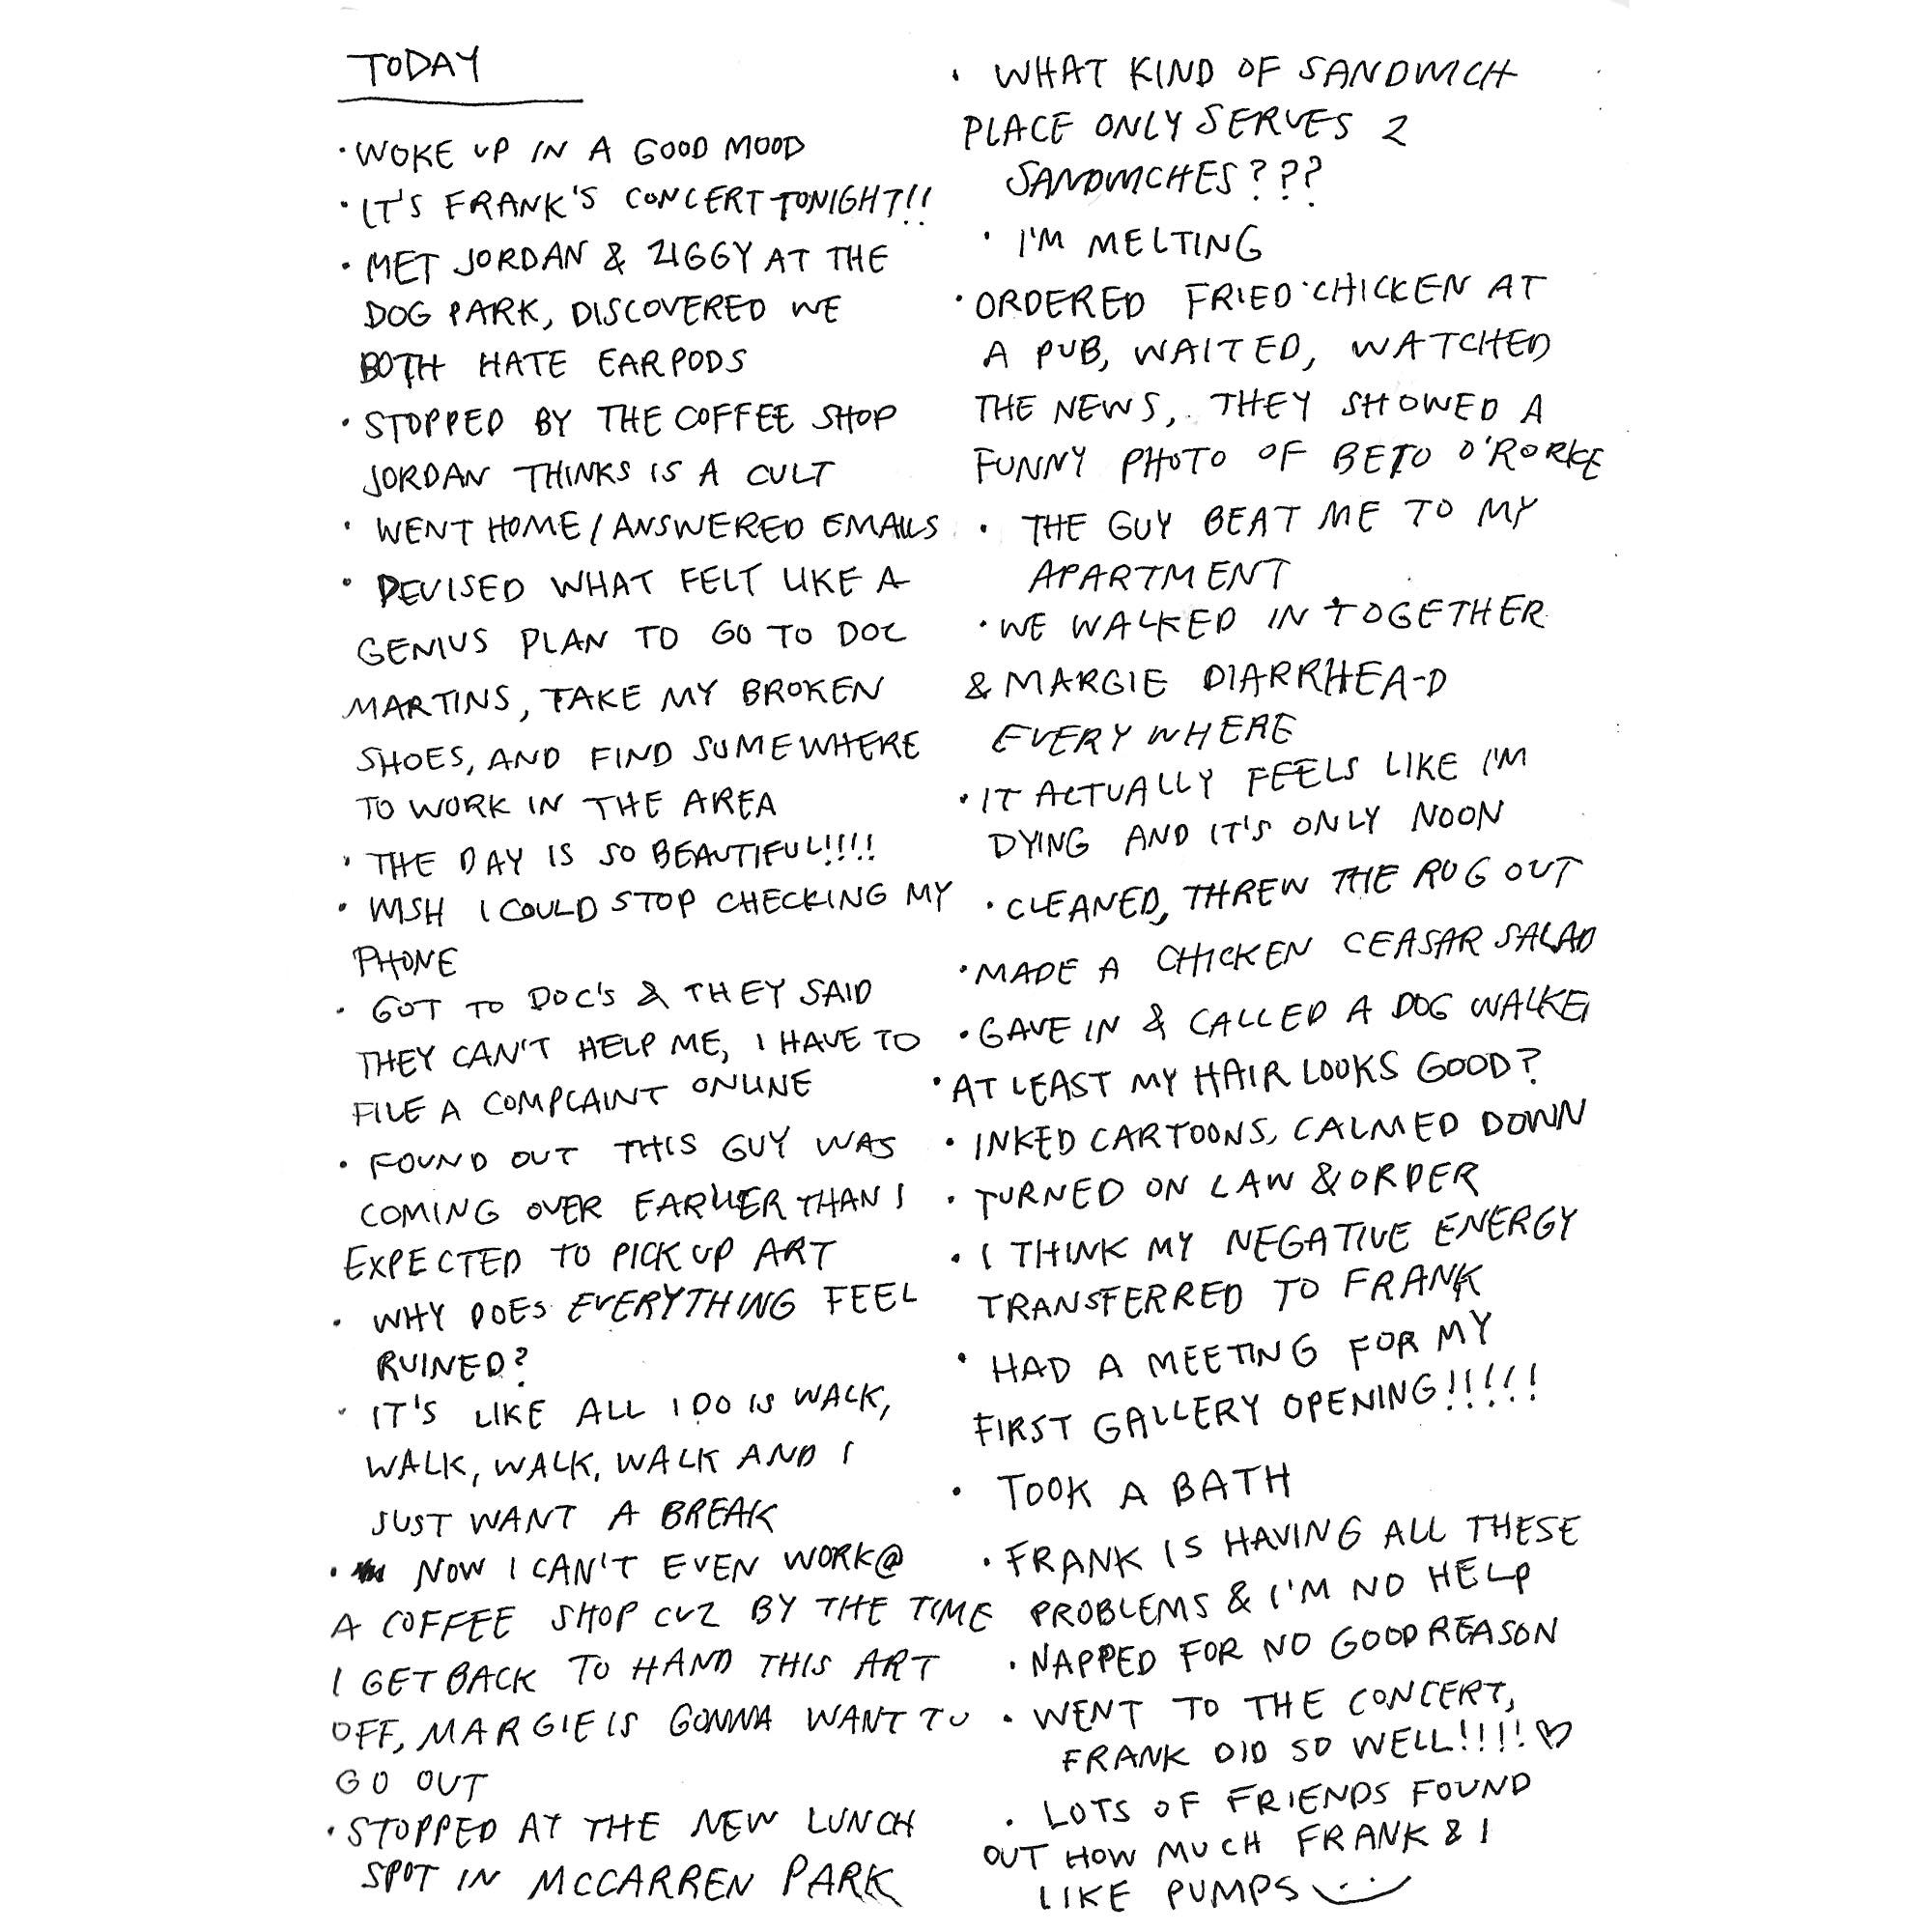 TODAY
• WOKE UP IN A GOOD MOOD
• IT'S FRANK'S CONCERT TONIGHT!!
• MET JORDAN & ZIGGY AT THE
DOG PARK, DISCOVERED WE
BOTH HATE EARPODS
• STOPPED BY THE COFFEE SHOP
JORDAN THINKS IS A CULT
• WENT HOME/ANSWERED EMAILS
• DEVISED WHAT FELT LIKE A
GENIUS PLAN TO GO TO DOC
MARTINS, TAKE MY BROKEN
SHOES, AND FIND SOMEWHERE
TO WORK IN THE AREA
• THE DAY IS SO BEAUTIFUL!!!!
• WISH I COULD STOP CHECKING MY
PHONE
• GOT TO DOC'S & THEY SAID
THEY CAN'T HELP ME, I HAVE TO
FILE A COMPLAINT ONLINE
• FOUND OUT THIS GUY WAS
COMING OVER EARLIER THAN I
EXPECTED TO PICK UP ART
• WHY DOES EVERYTHING FEEL
RUINED?
• IT'S LIKE ALL I DO IS WALK,
WALK, WALK, WALK AND I
JUST WANT A BREAK
• NOW I CAN'T EVEN WORK@
A COFFEE SHOP CUZ BY THE TIME
I GET BACK TO HAND THIS ART
OFF, MARGIE IS GONNA WANT TO
GO OUT
• STOPPED AT THE NEW LUNCH
SPOT IN MCCARREN PARK
• WHAT KIND OF SANDWICH
PLACE ONLY SERVES 2
SANDWICHES???
• I'M MELTING
• ORDERED FRIED CHICKEN AT
A PUB, WAITED, WATCHED
THE NEWS, THEY SHOWED A
FUNNY PHOTO OF BETO O'RORKE
• THE GUY BEAT ME TO MY
APARTMENT
• WE WALKED IN TOGETHER
& MARGIE DIARRHEA-D
EVERYWHERE
• IT ACTUALLY FEELS LIKE I'M
DYING AND IT'S ONLY NOON
• CLEANED, THREW THE RUG OUT
• MADE A CHICKEN CEASAR SALAD
• GAVE IN & CALLED A DOG WALKER
• AT LEAST MY HAIR LOOKS GOOD?
• INKED CARTOONS, CALMED DOWN
• TURNED ON LAW & ORDER
• I THINK MY NEGATIVE ENERGY
TRANSFERRED TO FRANK
• HAD A MEETING FOR MY
FIRST GALLERY OPENING!!!!!
• TOOK A BATH
• FRANK IS HAVING ALL THESE
PROBLEMS & I'M NO HELP
• NAPPED FOR NO GOOD REASON
• WENT TO THE CONCERT,
FRANK DID SO WELL!!!!♡
• LOTS OF FRIENDS FOUND
OUT HOW MUCH FRANK & I
LIKE PUMPS